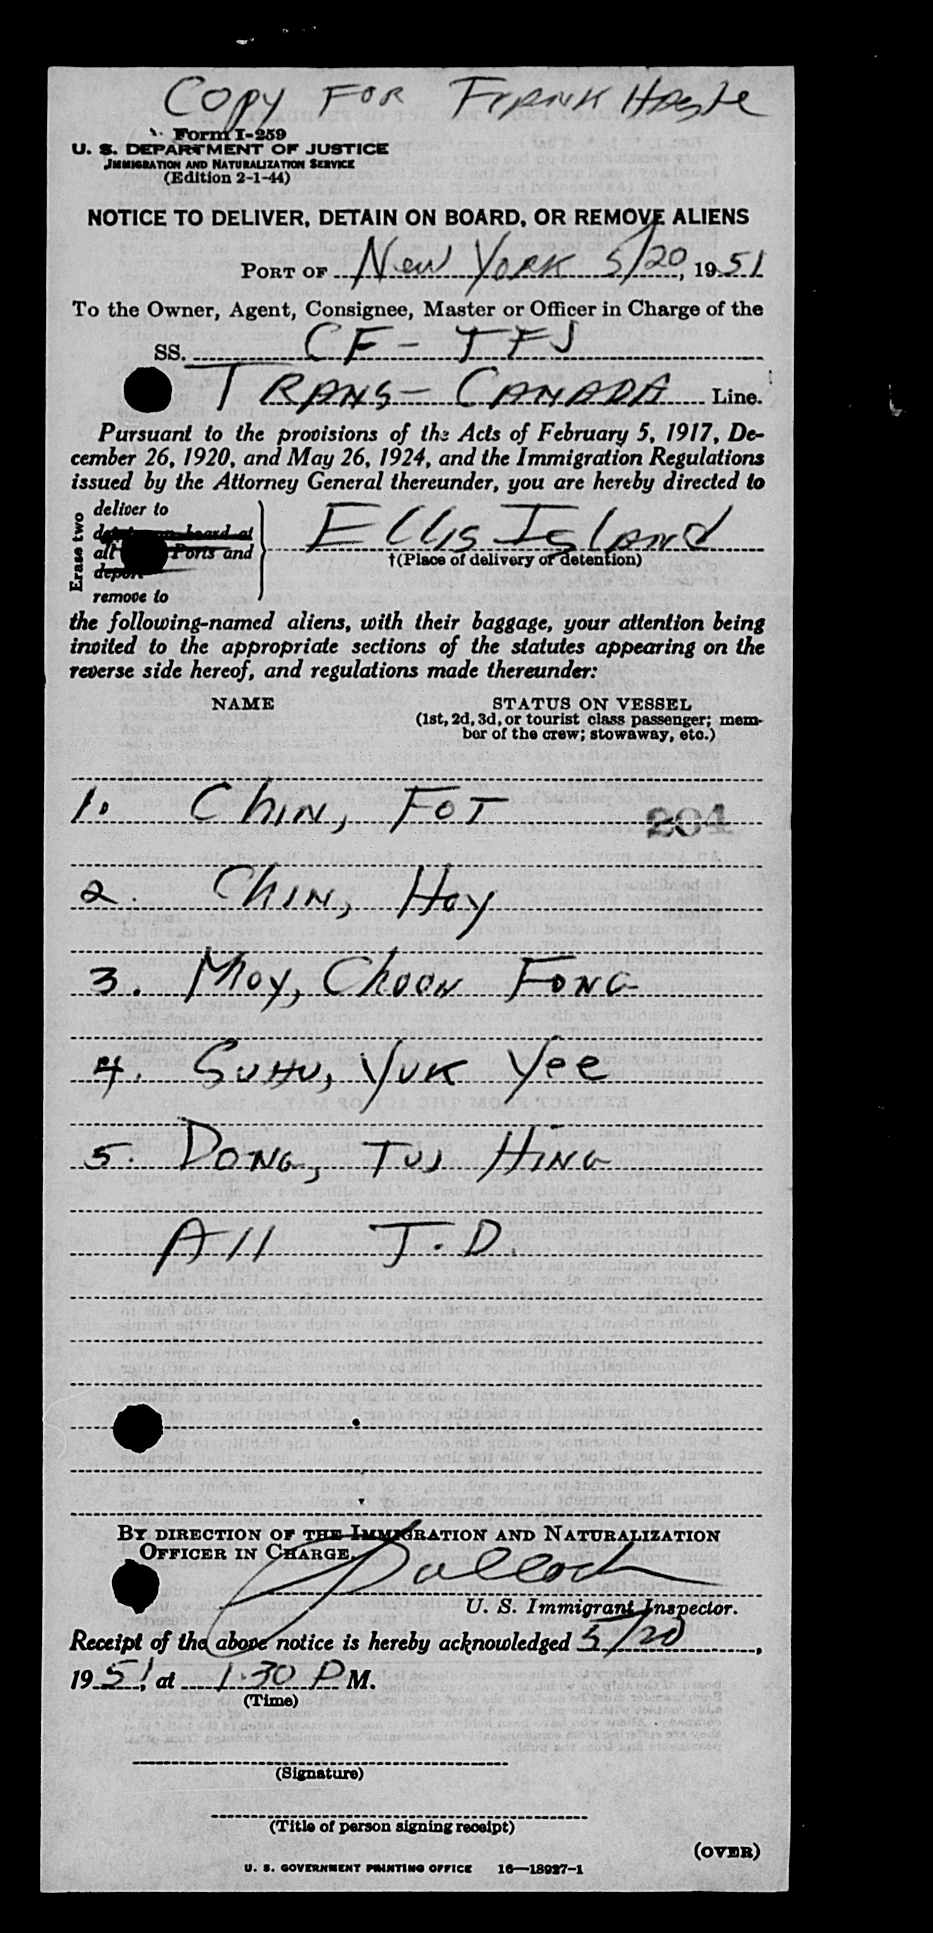 Copy FOR FRANK HASTE
Form I-259
U. S. DEPARTMENT OF JUSTICE
IMMIGRATION AND NATURALIZATION SERVICE
(Edition 2-1-44)
NOTICE TO DELIVER, DETAIN ON BOARD, OR REMOVE ALIENS
PORT OF New YORK 5/20, 1951
To the Owner, Agent, Consignee, Master or Officer in Charge of the
SS. CF-TFJ
TRANS-CANADA Line.
Pursuant to the provisions of the Acts of February 5, 1917, De-
cember 26, 1920, and May 26, 1924, and the Immigration Regulations
issued by the Attorney General thereunder, you are hereby directed to
Erase two
deliver to
detain on board at
all Ports and
deport
remove to
Ellis Island
†(Place of delivery or detention)
the following-named aliens, with their baggage, your attention being
invited to the appropriate sections of the statutes appearing on the
reverse side hereof, and regulations made thereunder:
NAME STATUS ON VESSEL
(1st, 2d, 3d, or tourist class passenger; mem-
ber of the crew; stowaway, etc.)
1. CHIN, FOT 204
2. CHIN, Hoy
3. Moy, CHOON FONG
4. SUHU, YUK Yee
5. DONG, TUI HING
All T.D.
BY DIRECTION OF THE IMMIGRATION AND NATURALIZATION
OFFICER IN CHARGE,
U. S. Immigrant Inspector.
Receipt of the above notice is hereby acknowledged 5/20,
1951, at 1:30 P M.
(Time)
(Signature)
(Title of person signing receipt)
(OVER)
U. S. GOVERNMENT PRINTING OFFICE 16—18927-1